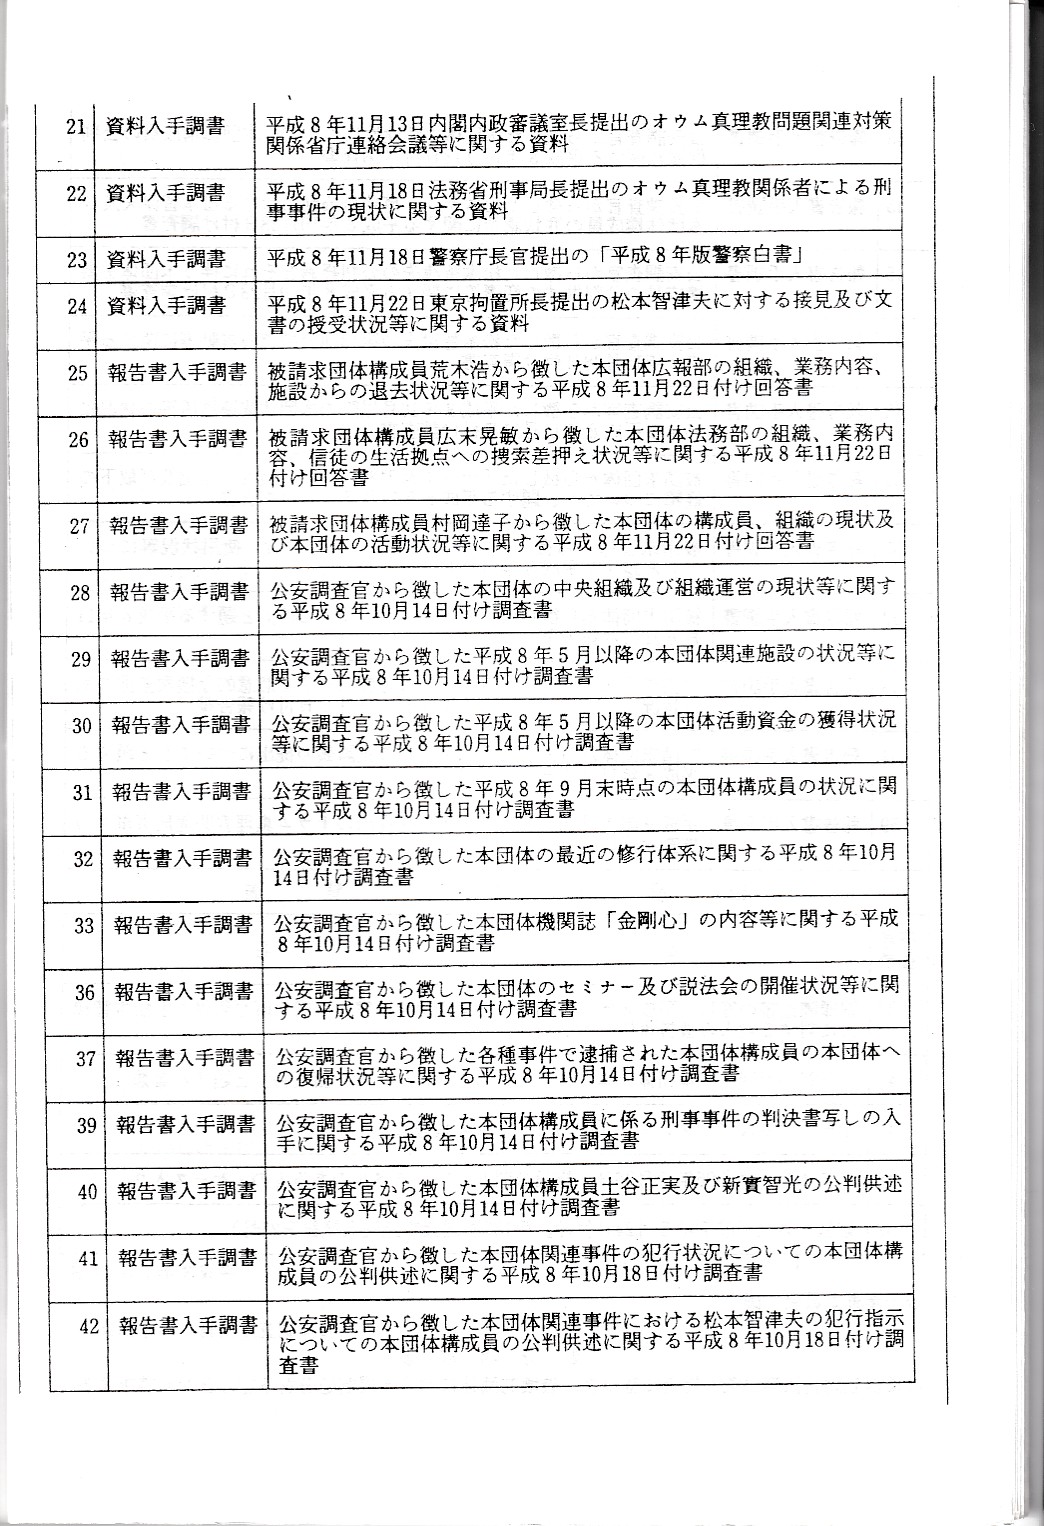 21 資料入手調書 平成８年11月13日内閣内政審議室長提出のオウム真理教問題関連対策
関係省庁連絡会議等に関する資料
22 資料入手調書 平成８年11月18日法務省刑事局長提出のオウム真理教関係者による刑
事事件の現状に関する資料
23 資料入手調書 平成８年11月18日警察庁長官提出の「平成８年版警察白書」
24 資料入手調書 平成８年11月22日東京拘置所長提出の松本智津夫に対する接見及び文
書の授受状況等に関する資料
25 報告書入手調書 被請求団体構成員荒木浩から徴した本団体広報部の組織、業務内容、
施設からの退去状況等に関する平成８年11月22日付け回答書
26 報告書入手調書 被請求団体構成員広末晃敏から徴した本団体法務部の組織、業務内
容、信徒の生活拠点への捜索差押え状況等に関する平成８年11月22日
付け回答書
27 報告書入手調書 被請求団体構成員村岡達子から徴した本団体の構成員、組織の現状及
び本団体の活動状況等に関する平成８年11月22日付け回答書
28 報告書入手調書 公安調査官から徴した本団体の中央組織及び組織運営の現状等に関す
る平成８年10月14日付け調査書
29 報告書入手調書 公安調査官から徴した平成８年５月以降の本団体関連施設の状況等に
関する平成８年10月14日付け調査書
30 報告書入手調書 公安調査官から徴した平成８年５月以降の本団体活動資金の獲得状況
等に関する平成８年10月14日付け調査書
31 報告書入手調書 公安調査官から徴した平成８年９月末時点の本団体構成員の状況に関
する平成８年10月14日付け調査書
32 報告書入手調書 公安調査官から徴した本団体の最近の修行体系に関する平成８年10月
14日付け調査書
33 報告書入手調書 公安調査官から徴した本団体機関誌「金剛心」の内容等に関する平成
８年10月14日付け調査書
36 報告書入手調書 公安調査官から徴した本団体のセミナー及び説法会の開催状況等に関
する平成８年10月14日付け調査書
37 報告書入手調書 公安調査官から徴した各種事件で逮捕された本団体構成員の本団体へ
の復帰状況等に関する平成８年10月14日付け調査書
39 報告書入手調書 公安調査官から徴した本団体構成員に係る刑事事件の判決書写しの入
手に関する平成８年10月14日付け調査書
40 報告書入手調書 公安調査官から徴した本団体構成員土谷正実及び新實智光の公判供述
に関する平成８年10月14日付け調査書
41 報告書入手調書 公安調査官から徴した本団体関連事件の犯行状況についての本団体構
成員の公判供述に関する平成８年10月18日付け調査書
42 報告書入手調書 公安調査官から徴した本団体関連事件における松本智津夫の犯行指示
についての本団体構成員の公判供述に関する平成８年10月18日付け調
査書